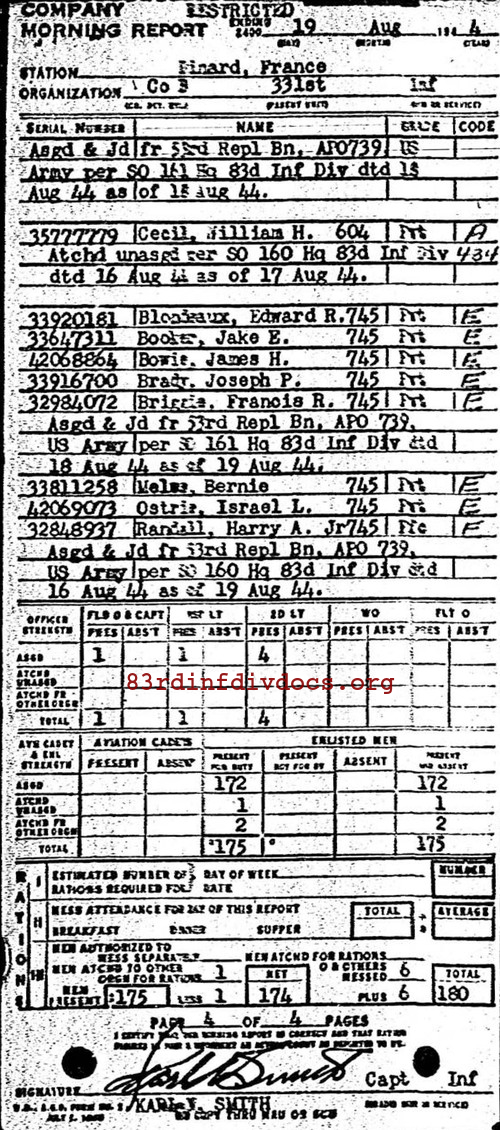 COMPANY RESTRICTED
MORNING REPORT ENDING 2400 19 Aug 194 4
(DAY) (MONTH) (YEAR)
STATION Dinard, France
ORGANIZATION Co B 331st Inf
(PARENT UNIT)
SERIAL NUMBER NAME GRADE CODE
Asgd & Jd fr 53rd Repl Bn, APO739, US
Army per SO 161 Hq 83d Inf Div dtd 18
Aug 44 as of 18 Aug 44.
35777779 Cecil, William H. 604 Pvt A
Atchd unasgd per SO 160 Hq 83d Inf Div 434
dtd 16 Aug 44 as of 17 Aug 44.
33920181 Edward R. 745 Pvt E
33647311 Booker, Jake E. 745 Pvt E
42068864 Bowie, James H. 745 Pvt E
33916700 Brady, Joseph P. 745 Pvt E
32984072 Francis R. 745 Pvt E
Asgd & Jd fr 53rd Repl Bn, APO 739,
US Army per SO 161 Hq 83d Inf Div dtd
18 Aug 44 as of 19 Aug 44.
33811258 Bernie 745 Pvt E
42069073 Israel L. 745 Pvt E
32848937 Randall, Harry A. Jr 745 Pfc E
Asgd & Jd fr 53rd Repl Bn, APO 739,
US Army per SO 160 Hq 83d Inf Div dtd
16 Aug 44 as of 19 Aug 44.
OFFICER STRENGTH FLD O & CAPT 1ST LT 2D LT WO FLT O
PRES ABS'T PRES ABS'T PRES ABS'T PRES ABS'T PRES ABS'T
ASGD 1 1 4
ATCHD UNASGD
83rdinfdivdocs.org
ATCHD FR OTHER ORGN
TOTAL 1 1 4
AVN CADET & ENL STRENGTH AVIATION CADETS ENLISTED MEN
PRESENT ABSENT PRESENT FOR DUTY PRESENT NOT FOR DY ABSENT PRESENT AND ABSENT
ASGD 172 172
ATCHD UNASGD 1 1
ATCHD FR OTHER ORGN 2 2
TOTAL 175 175
RATIONS
I ESTIMATED NUMBER OF DAY OF WEEK NUMBER
RATIONS REQUIRED FOR DATE
II MESS ATTENDANCE FOR DAY OF THIS REPORT TOTAL AVERAGE
BREAKFAST DINNER SUPPER
III MEN AUTHORIZED TO MESS SEPARATELY MEN ATCHD FOR RATIONS
MEN ATCHD TO OTHER ORGN FOR RATIONS 1 NET O & OTHERS MESSED 6 TOTAL
MEN PRESENT 175 LESS 1 174 PLUS 6 180
PAGE 4 OF 4 PAGES
Capt Inf
SIGNATURE
KARL SMITH